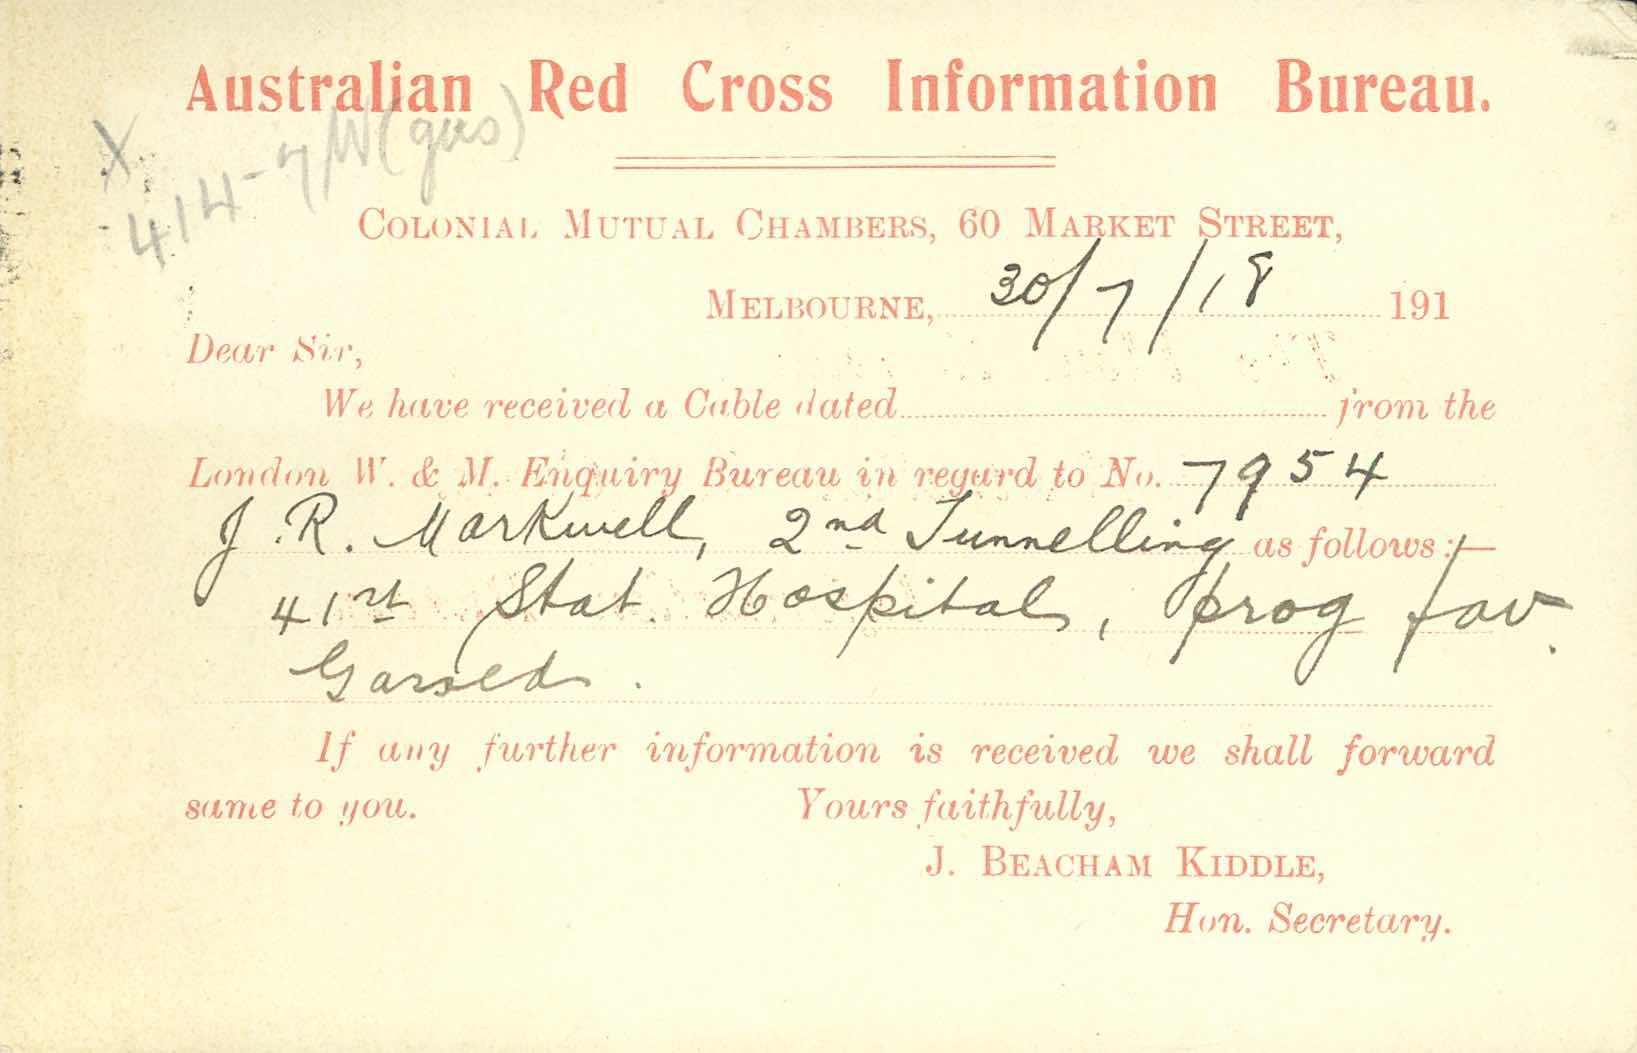 Australian Red Cross Information Bureau.
X
414-7/W (gas)
COLONIAL MUTUAL CHAMBERS, 60 MARKET STREET,
MELBOURNE, 30/7/18 191
Dear Sir,
We have received a Cable dated from the
London W. & M. Enquiry Bureau in regard to No. 7954
J. R. Markwell, 2nd Tunnelling as follows:—
41st Stat. Hospital, prog fav.
Gassed.
If any further information is received we shall forward
same to you. Yours faithfully,
J. BEACHAM KIDDLE,
Hon. Secretary.